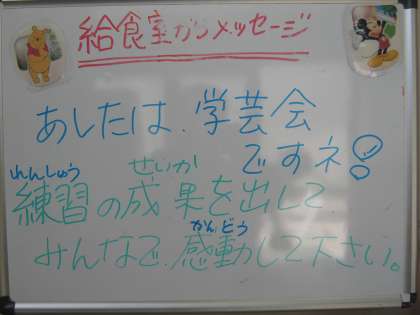 給食室からメッセージ
あしたは、学芸会
ですネ!
れんしゅう せいか
練習の成果を出して
かんどう
みんなで、感動して下さい。